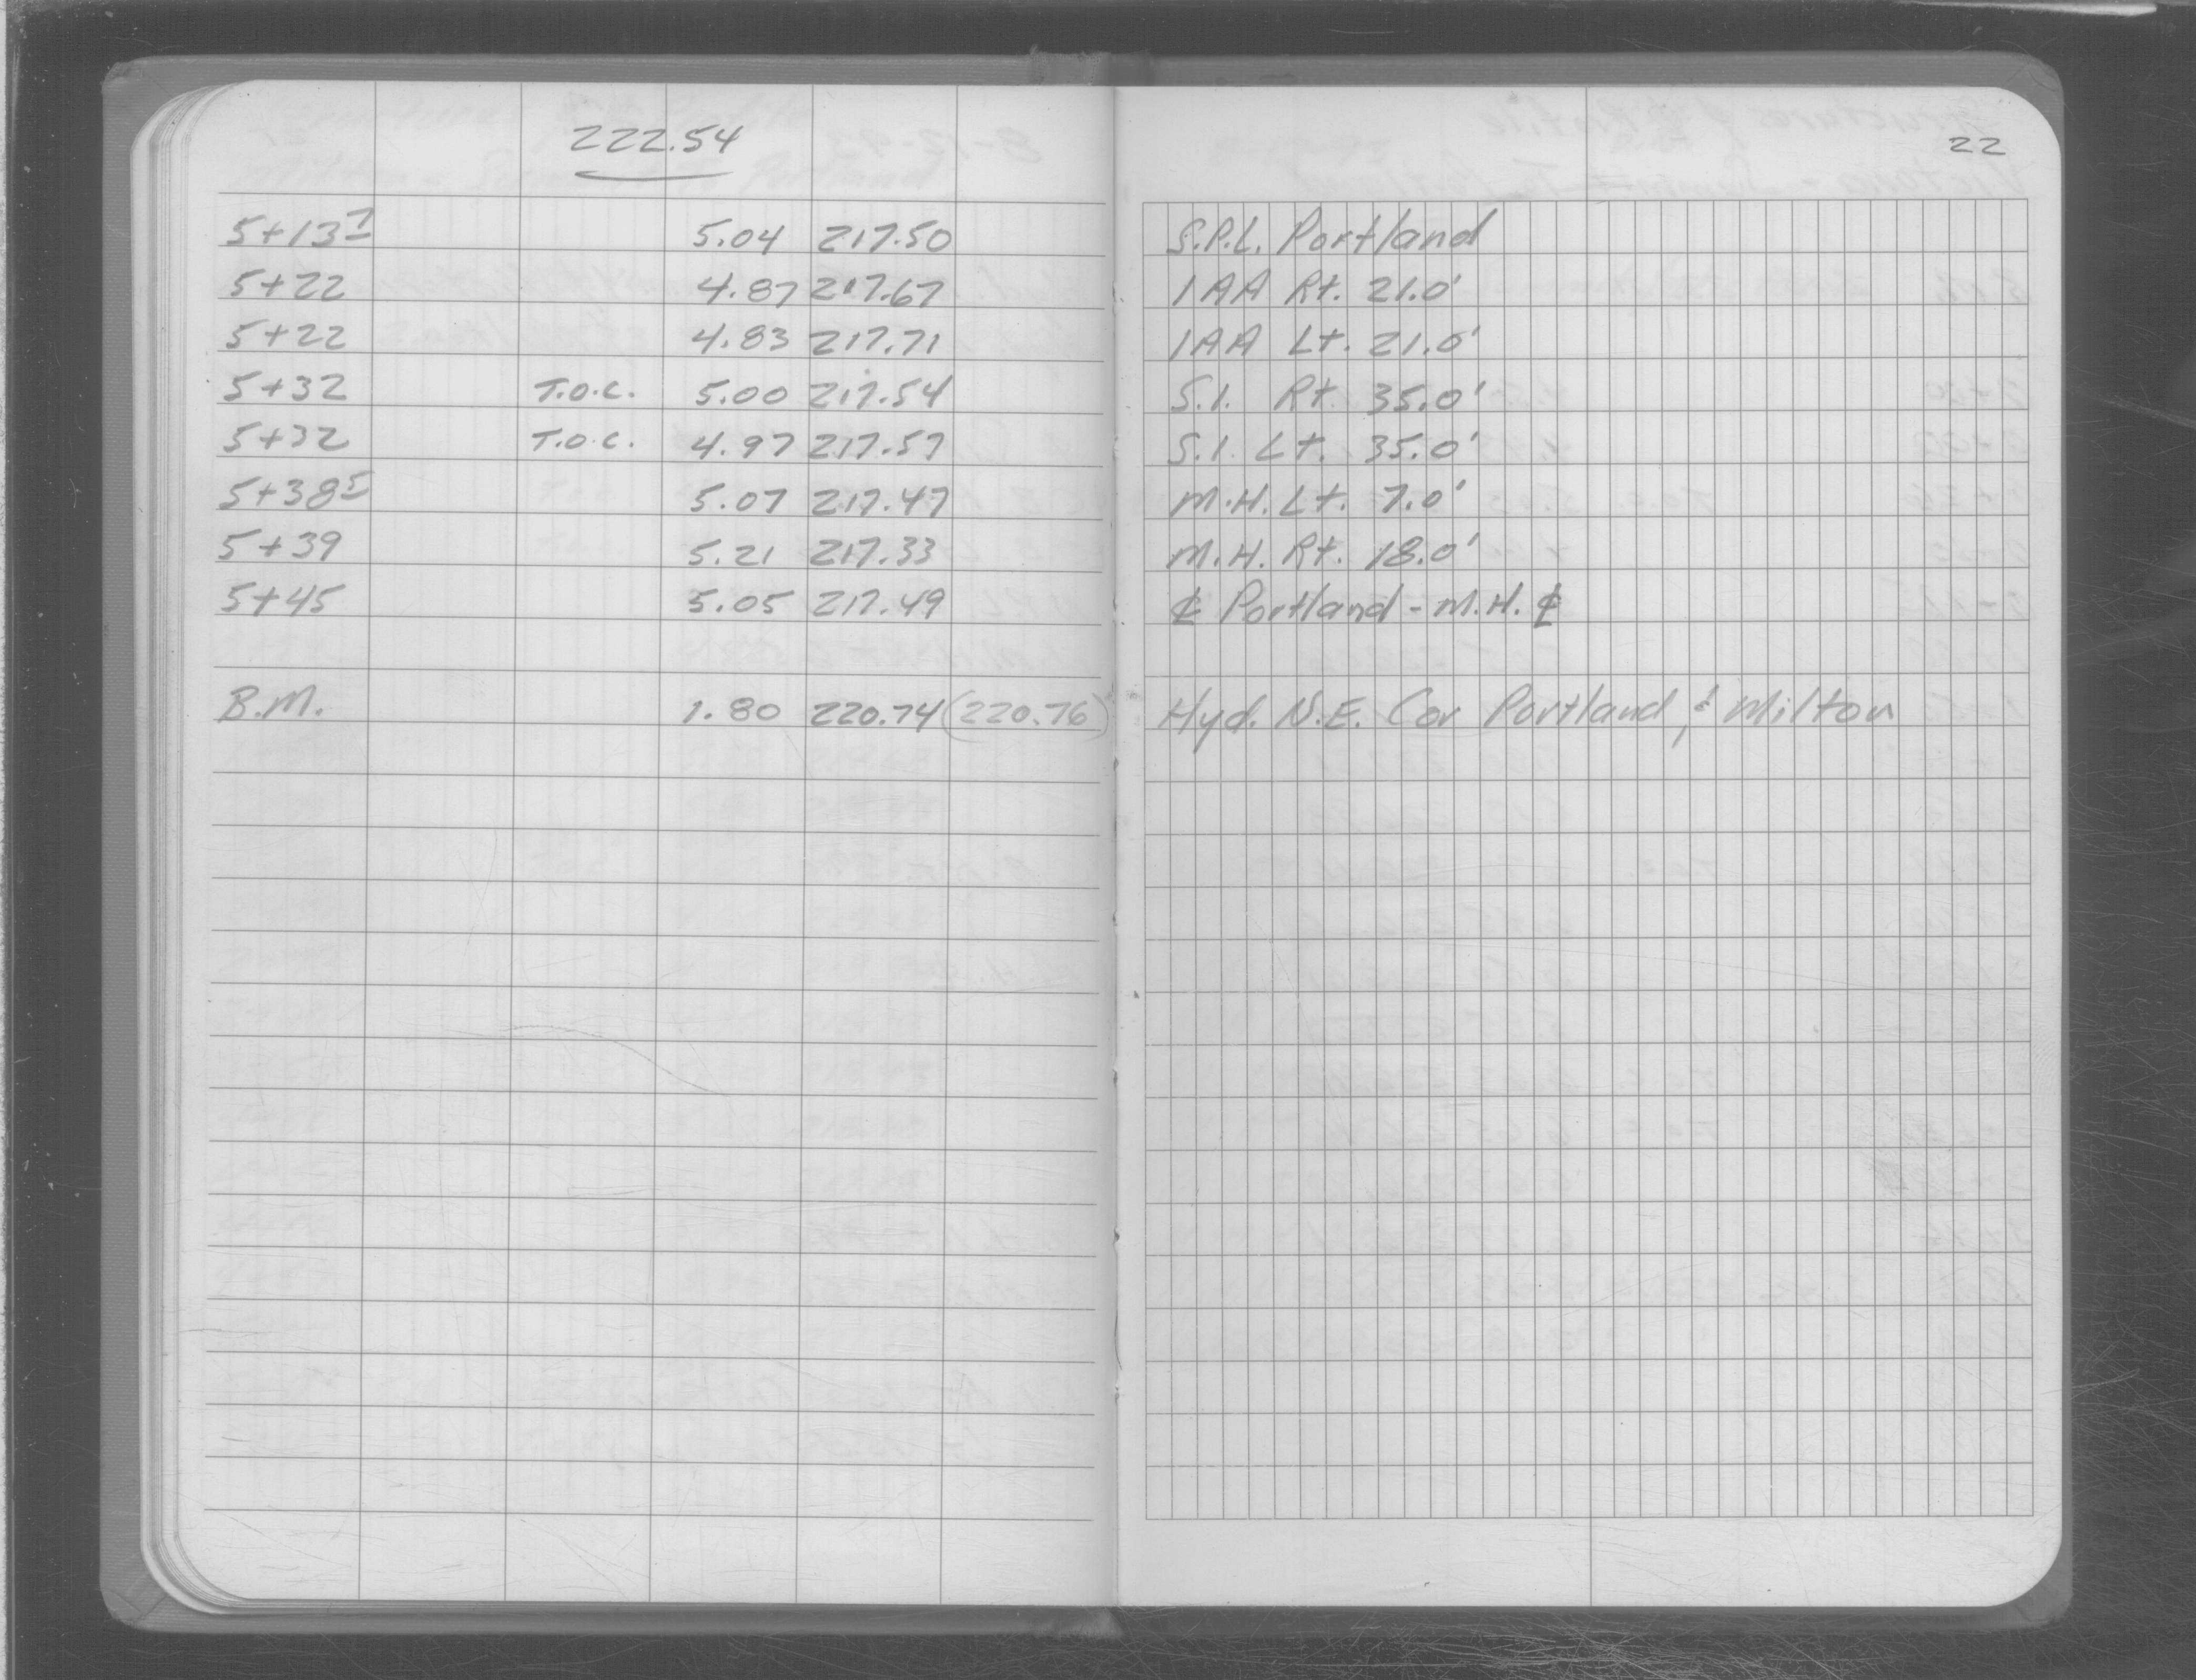 222.54
22
5+13⁷ 5.04 217.50 S.P.L. Portland
5+22 4.87 217.67 1AA Rt. 21.0'
5+22 4.83 217.71 1AA Lt. 21.0'
5+32 T.O.C. 5.00 217.54 S.I. Rt. 35.0'
5+32 T.O.C. 4.97 217.57 S.I. Lt. 35.0'
5+38⁵ 5.07 217.47 M.H. Lt. 7.0'
5+39 5.21 217.33 M.H. Rt. 18.0'
5+45 5.05 217.49 ℄ Portland - M.H. ℄
B.M. 1.80 220.74 (220.76) Hyd. N.E. Cor Portland & Milton